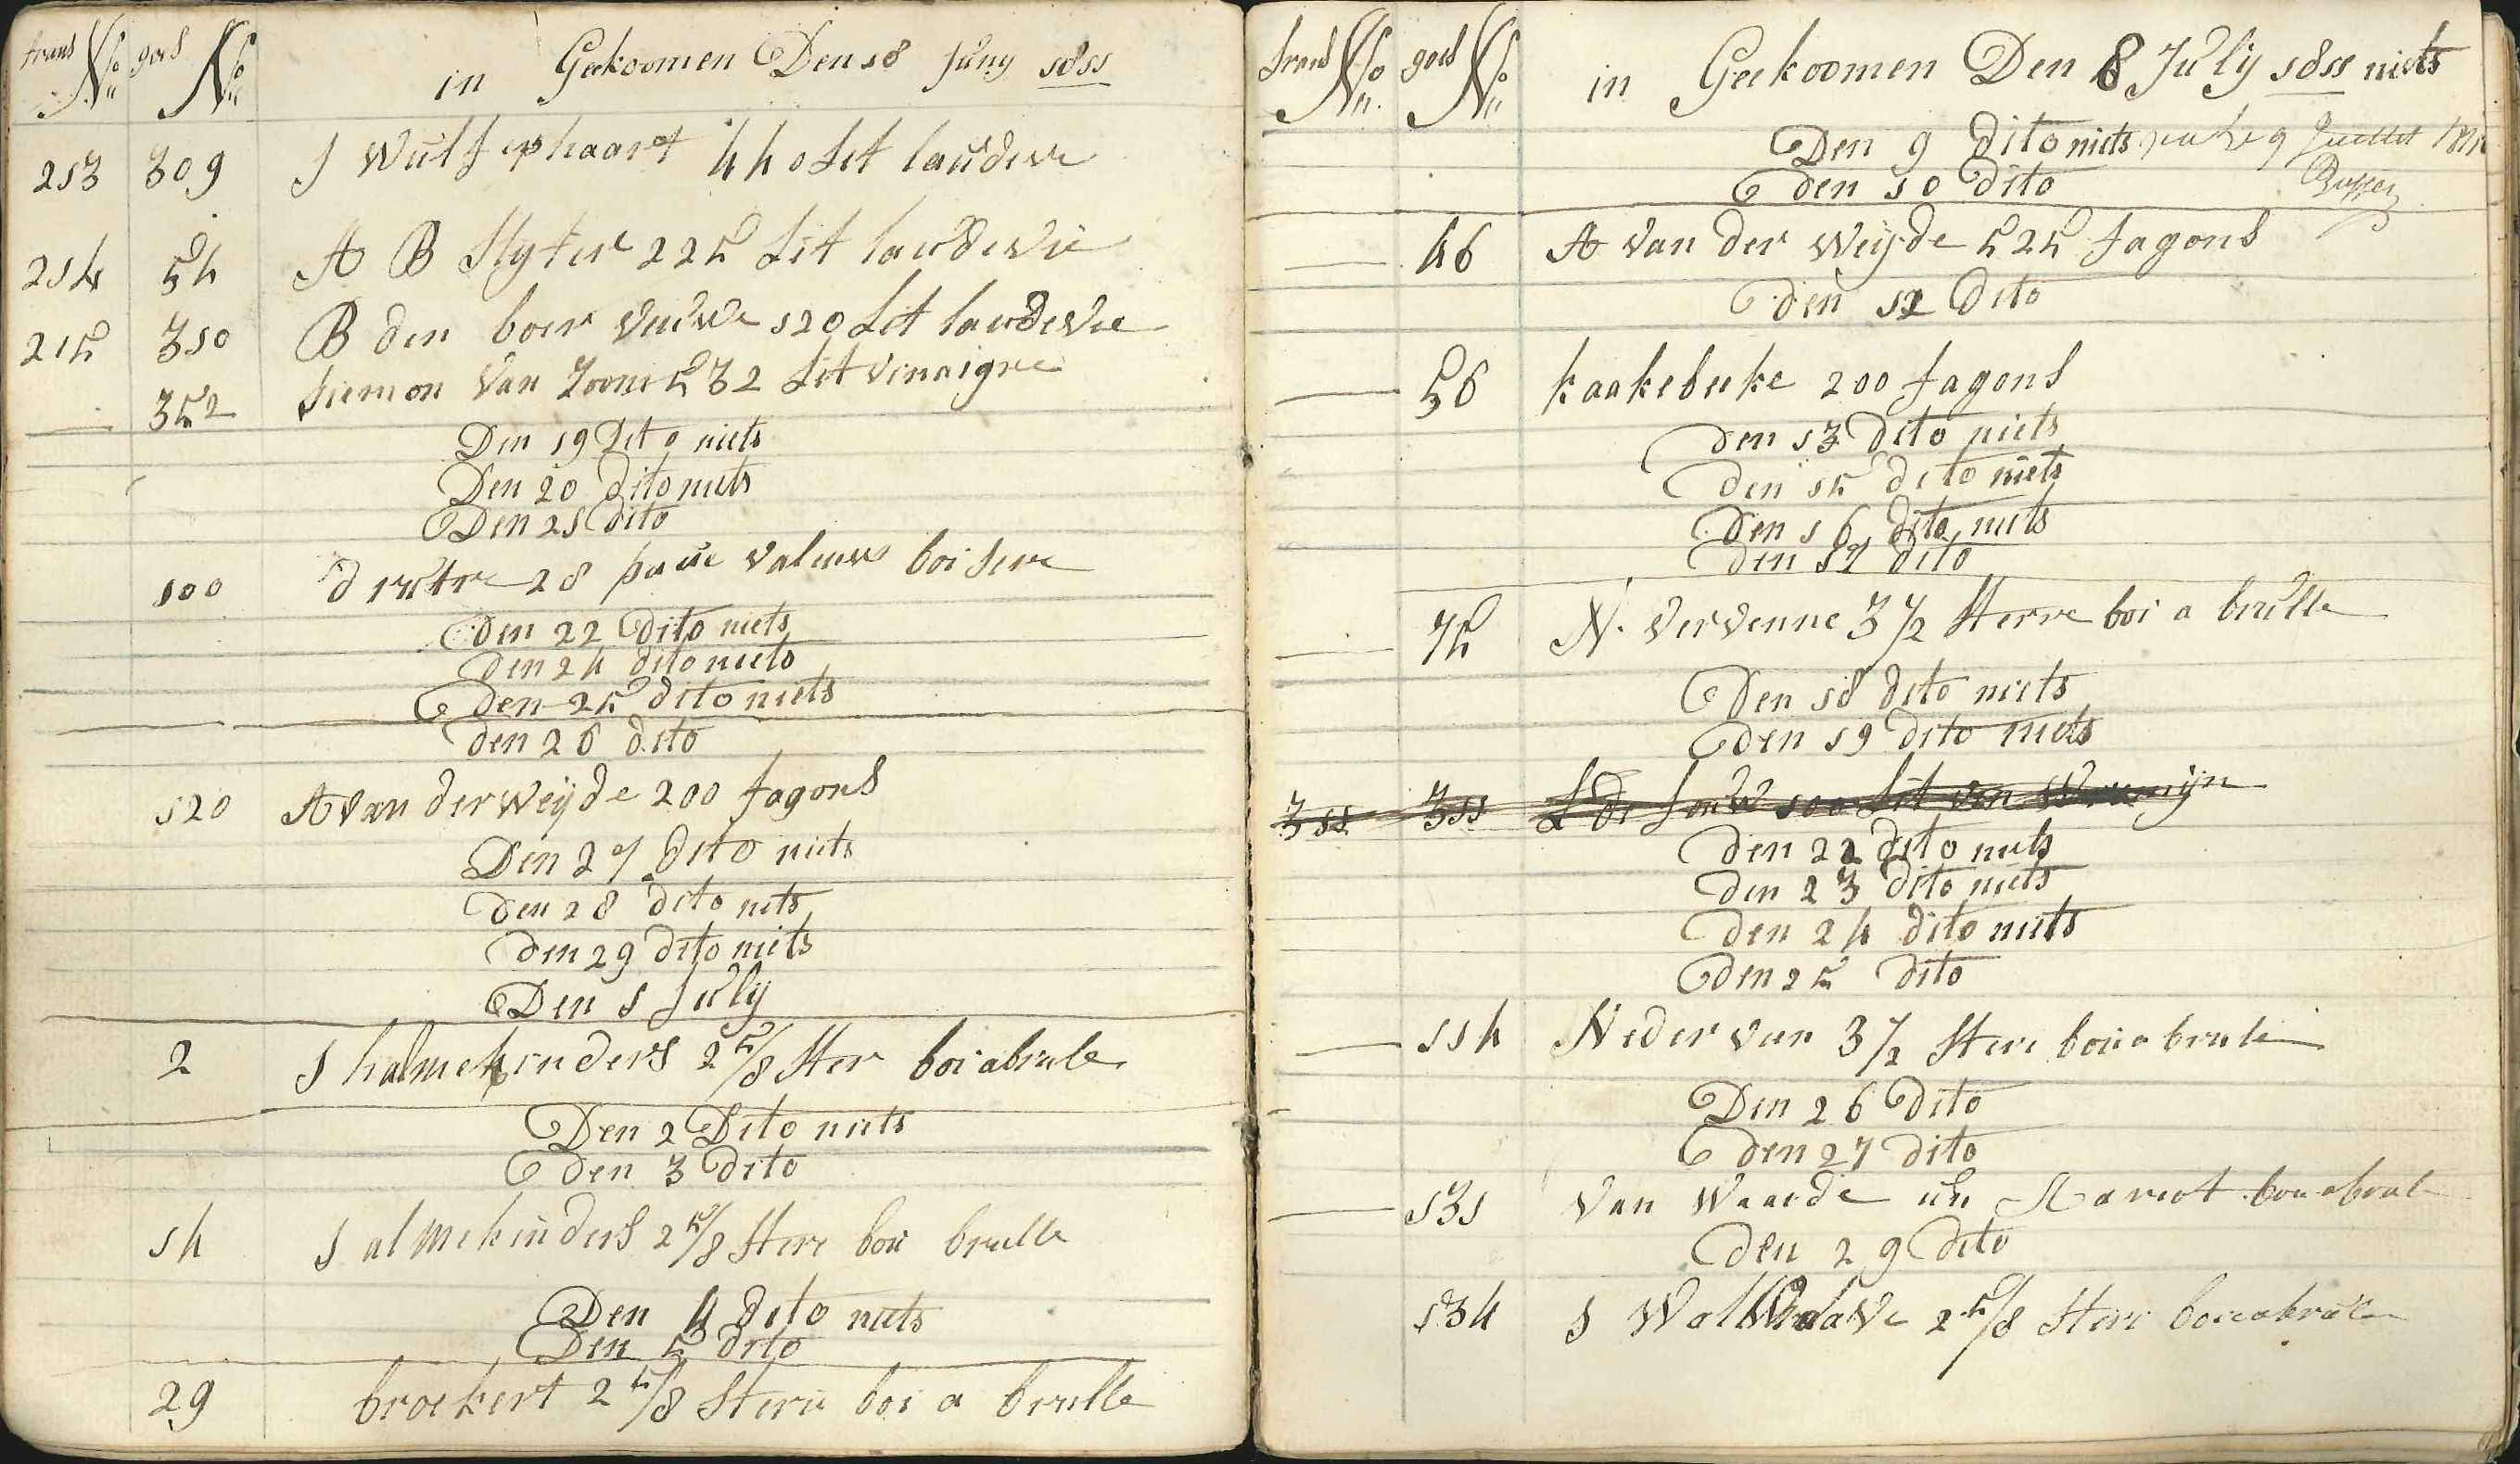 frans No goes No in Geekoomen Den 18 Juny 1811
213 309 J Wulfephaart 440 Lit laudevie
214 54 A B Slyter 225 Lit laudevie
215 310 B den boer veuve 120 Lit laudevie
352 Siemon Van Zoom 532 Lit vinaigre
Den 19 Dito niets
Den 20 dito niets
Den 21 dito
100 28 valeur
den 22 dito niets
den 24 dito niets
den 25 dito niets
den 26 dito
120 A van der Weijde 200 fagons
Den 27 dito niets
den 28 dito niets
den 29 dito niets
Den 1 July
2 J halmekinders 2 5/8 Ster boi abrule
Den 2 Dito niets
den 3 dito
14 J almekinders 2 5/8 Stere boii brulle
Den 4 dito niets
Den 5 dito
29 broekert 2 5/8 Stere boi a brulle
frans No goes No in Geekoomen Den 8 July 1811 niets
Den 9 dito niets vu le 9 Juillet
den 10 dito
46 A van der Weijde 525 fagons
den 12 dito
56 kaakebeeke 200 fagons
den 13 dito niets
den 15 dito niets
den 16 dito niets
den 17 dito
75 N. Vervenne 3 1/2 Sterre boi a brulle
Den 18 dito niets
den 19 dito niets
311 311 L de Louw 100 Lit van
den 22 dito niets
den 23 dito niets
den 24 dito niets
den 25 dito
114 Neder veen 3 1/2 Stere boi a brule
Den 26 dito
den 27 dito
131 Van Waarde un
den 29 dito
134 J 2 5/8 Stere boi abrule